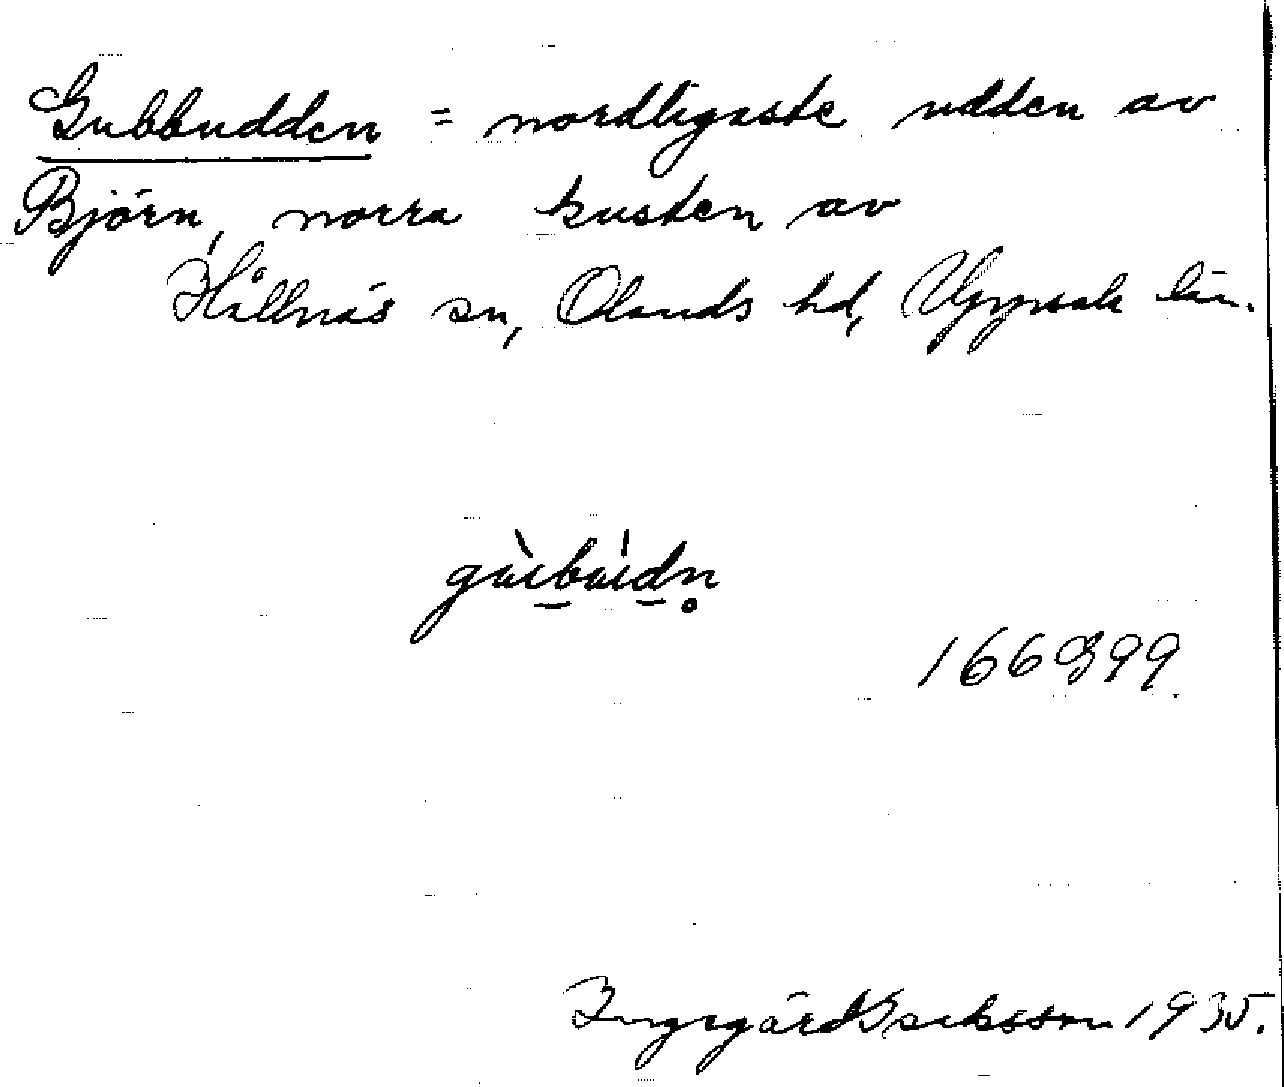 Gubbudden = nordligaste udden av
Björn, norra kusten av
Hållnäs sn, Olands hd, Uppsala län.
Ingegärd 1935.